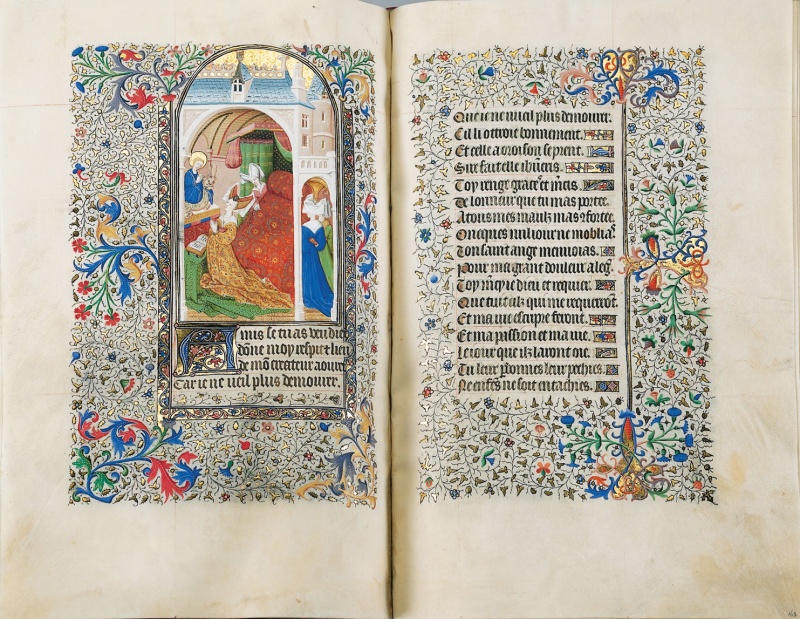 Amis se tu as veu dieu
dōne moy respit et lieu
de mō createur aourer
Car ie ne ueil plus demourer.
Que ie ne vueil plus demourer.
Cil li ottroie bonnement.
Et celle a oroison se prent.
Sire fait elle
Toy renge grace et mercis.
De lonneur que tu mas portee.
A tous mes maulx mas
Onques nul iour ne moblias.
Ton saint ange menuoias.
Pour ma grant douleur aleg.
Toy mercye dieu et requier.
Que tuit cil qui me requerrōt.
Et ma vie escripre feront.
Et ma passion et ma vie.
Le iour que ilz laront oie.
Tu leur pdonnes leur pechies.
Ne enfes ne soit entachies.